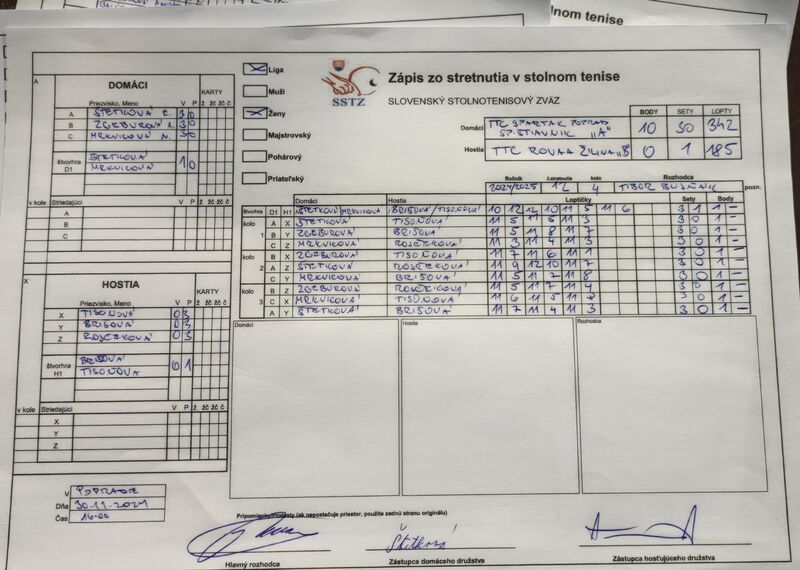 lnom tenise
Zápis zo stretnutia v stolnom tenise
SLOVENSKÝ STOLNOTENISOVÝ ZVÄZ
SSTZ
Liga
Muži
Ženy
Majstrovský
Pohárový
Priateľský
BODY SETY LOPTY
Domáci TTC SPARTAK POPRAD SP. ŠTIAVNIK "A" 10 30 342
Hostia TTC ROVAA ŽILINA "B" 0 1 185
Ročník 1.stretnutia kolo Rozhodca
2024/2025 12 4 TIBOR pozn.
A
DOMÁCI
KARTY
Priezvisko, Meno V P ž žč žč č
A ŠTETKOVÁ E. 3 0
B ZGEBUROVÁ A. 3 0
C MRKVICOVÁ N. 3 0
štvorhra D1 ŠTETKOVÁ MRKVICOVÁ 1 0
v kole Striedajúci V P ž žč žč č
A
B
C
X
HOSTIA
KARTY
Priezvisko, Meno V P ž žč žč č
X TISOŇOVÁ 0 3
Y BRISOVÁ 0 3
Z 0 3
štvorhra H1 BRISOVÁ TISOŇOVA 0 1
v kole Striedajúci V P ž žč žč č
X
Y
Z
Domáci Hostia Loptičky Sety Body
štvorhra D1 H1 ŠTETKOVÁ/MRKVICOVÁ BRISOVÁ/TISOŇOVÁ 10 12 12 10 11 5 11 6 3 1 1 –
kolo A X ŠTETKOVÁ TISOŇOVÁ 11 5 11 5 11 5 3 0 1 –
1 B Y ZGEBUROVÁ BRISOVÁ 11 5 11 8 11 7 3 0 1 –
C Z MRKVICOVÁ 11 3 11 4 11 3 3 0 1 –
kolo B X ZGEBUROVÁ TISOŇOVÁ 11 7 11 6 11 1 3 0 1 –
2 A Z ŠTETKOVÁ 11 9 12 10 11 7 3 0 1 –
C Y MRKVICOVÁ BRISOVÁ 11 5 11 7 11 8 3 0 1 –
kolo B Z ZGEBUROVÁ 11 5 11 7 11 4 3 0 1 –
3 C X MRKVICOVÁ TISOŇOVÁ 11 6 11 5 11 3 0 1 –
A Y ŠTETKOVÁ BRISOVÁ 11 7 11 4 11 3 3 0 1 –
Domáci Hostia Rozhodca
V POPRADE
Dňa 30.11.2024
Čas 16:00
Pripomienky/Protesty (ak nepostačuje priestor, použite zadnú stranu originálu)
Štetková
Hlavný rozhodca
Zástupca domáceho družstva
Zástupca hosťujúceho družstva